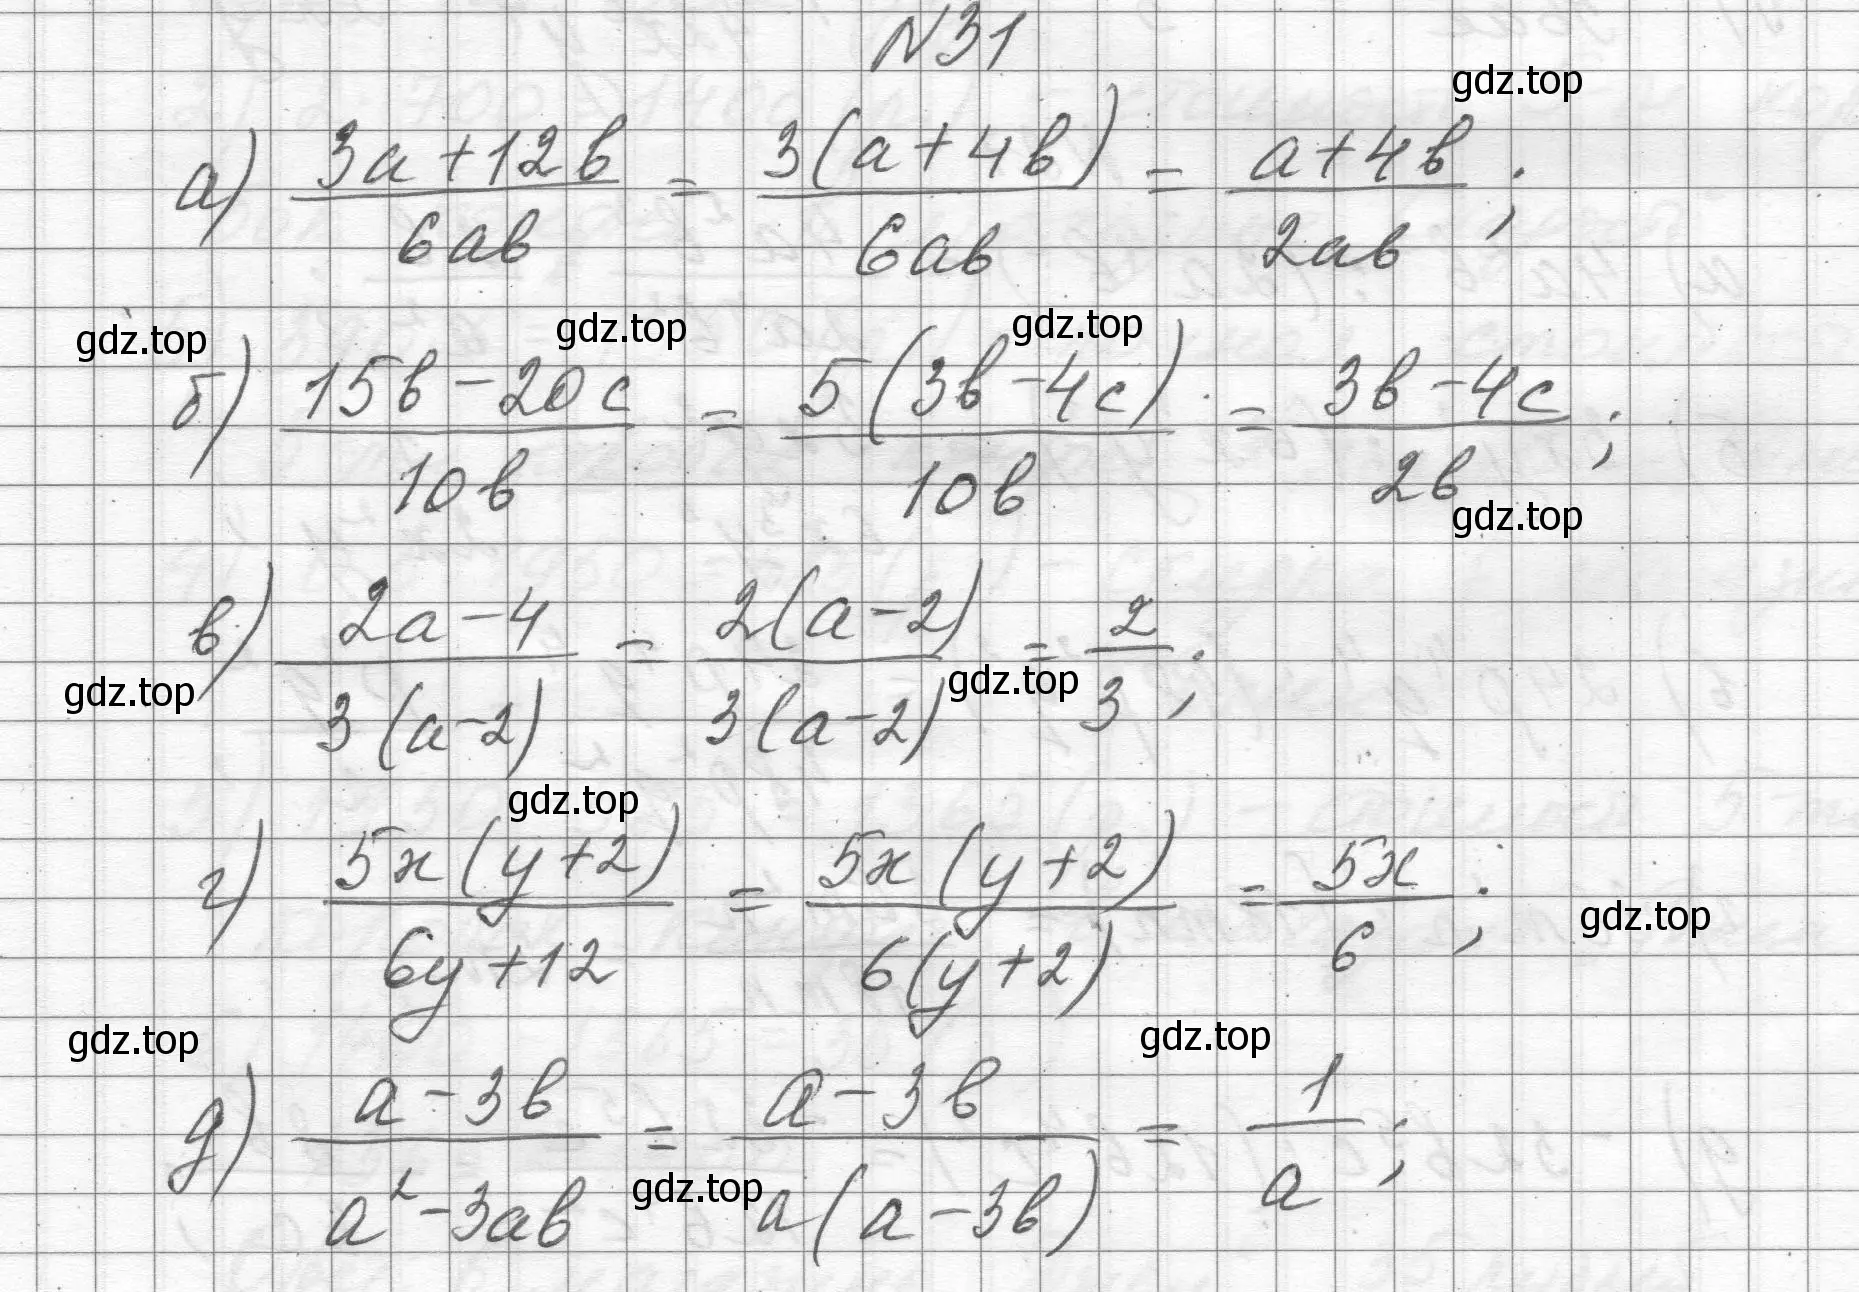 N31
gdz.top
а) (3a+12b)/(6ab) = (3(a+4b))/(6ab) = (a+4b)/(2ab);
gdz.top gdz.top gdz.top
б) (15b-20c)/(10b) = (5(3b-4c))/(10b) = (3b-4c)/(2b);
gdz.top
в) (2a-4)/(3(a-2)) = (2(a-2))/(3(a-2)) = 2/3;
gdz.top gdz.top
gdz.top
г) (5x(y+2))/(6y+12) = (5x(y+2))/(6(y+2)) = (5x)/6;
gdz.top
gdz.top gdz.top
д) (a-3b)/(a²-3ab) = (a-3b)/(a(a-3b)) = 1/a;
gdz.top